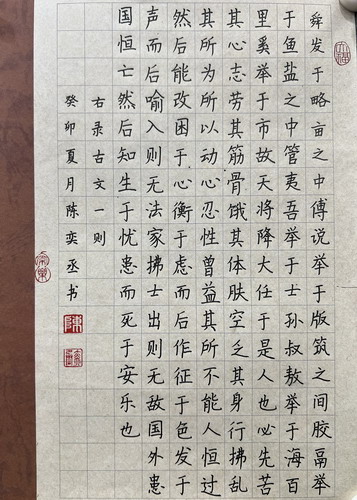 舜发于略亩之中傅说举于版筑之间胶鬲举
于鱼盐之中管夷吾举于士孙叔敖举于海百
里奚举于市故天将降大任于是人也必先苦
其心志劳其筋骨饿其体肤空乏其身行拂乱
其所为所以动心忍性曾益其所不能人恒过
然后能改困于心衡于虑而后作征于色发于
声而后喻入则无法家拂士出则无敌国外患
国恒亡然后知生于忧患而死于安乐也
右录古文一则
癸卯夏月陈奕丞书
陳